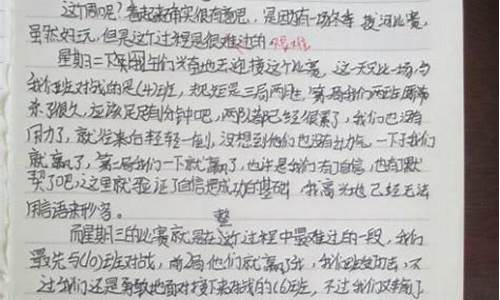 这个周呢?看起来确实很有意吧,是因为有一场冬季拔河比赛,
虽然好玩,但是这个过程是很难过的 艰难
星期二下午同学们兴奋地去迎接这个比赛,这一天又比一场,与
我们班对战的是(4)班,规矩是三局两胜,第一局我们两班
来了很久,应该足足有1分钟吧,两队都已经很累了,我们也没有
用力了,就往来白轻轻一倒,没想到他们也没有力气,一下子我们
就赢了,第二局我们一下就赢了,也许是我们有了自信,也有了默
契了吧,这里就验证了自信把成功的基础,我高兴地已经无法
用言语来形容。
整
而星期三的比赛就是在这个过程中最难过的一段,我们
最先与(10)班对战,前2局他们就赢了我,我们班,不
过我们还是勇敢地面对接下来对战的(6)班,不过我们又输了